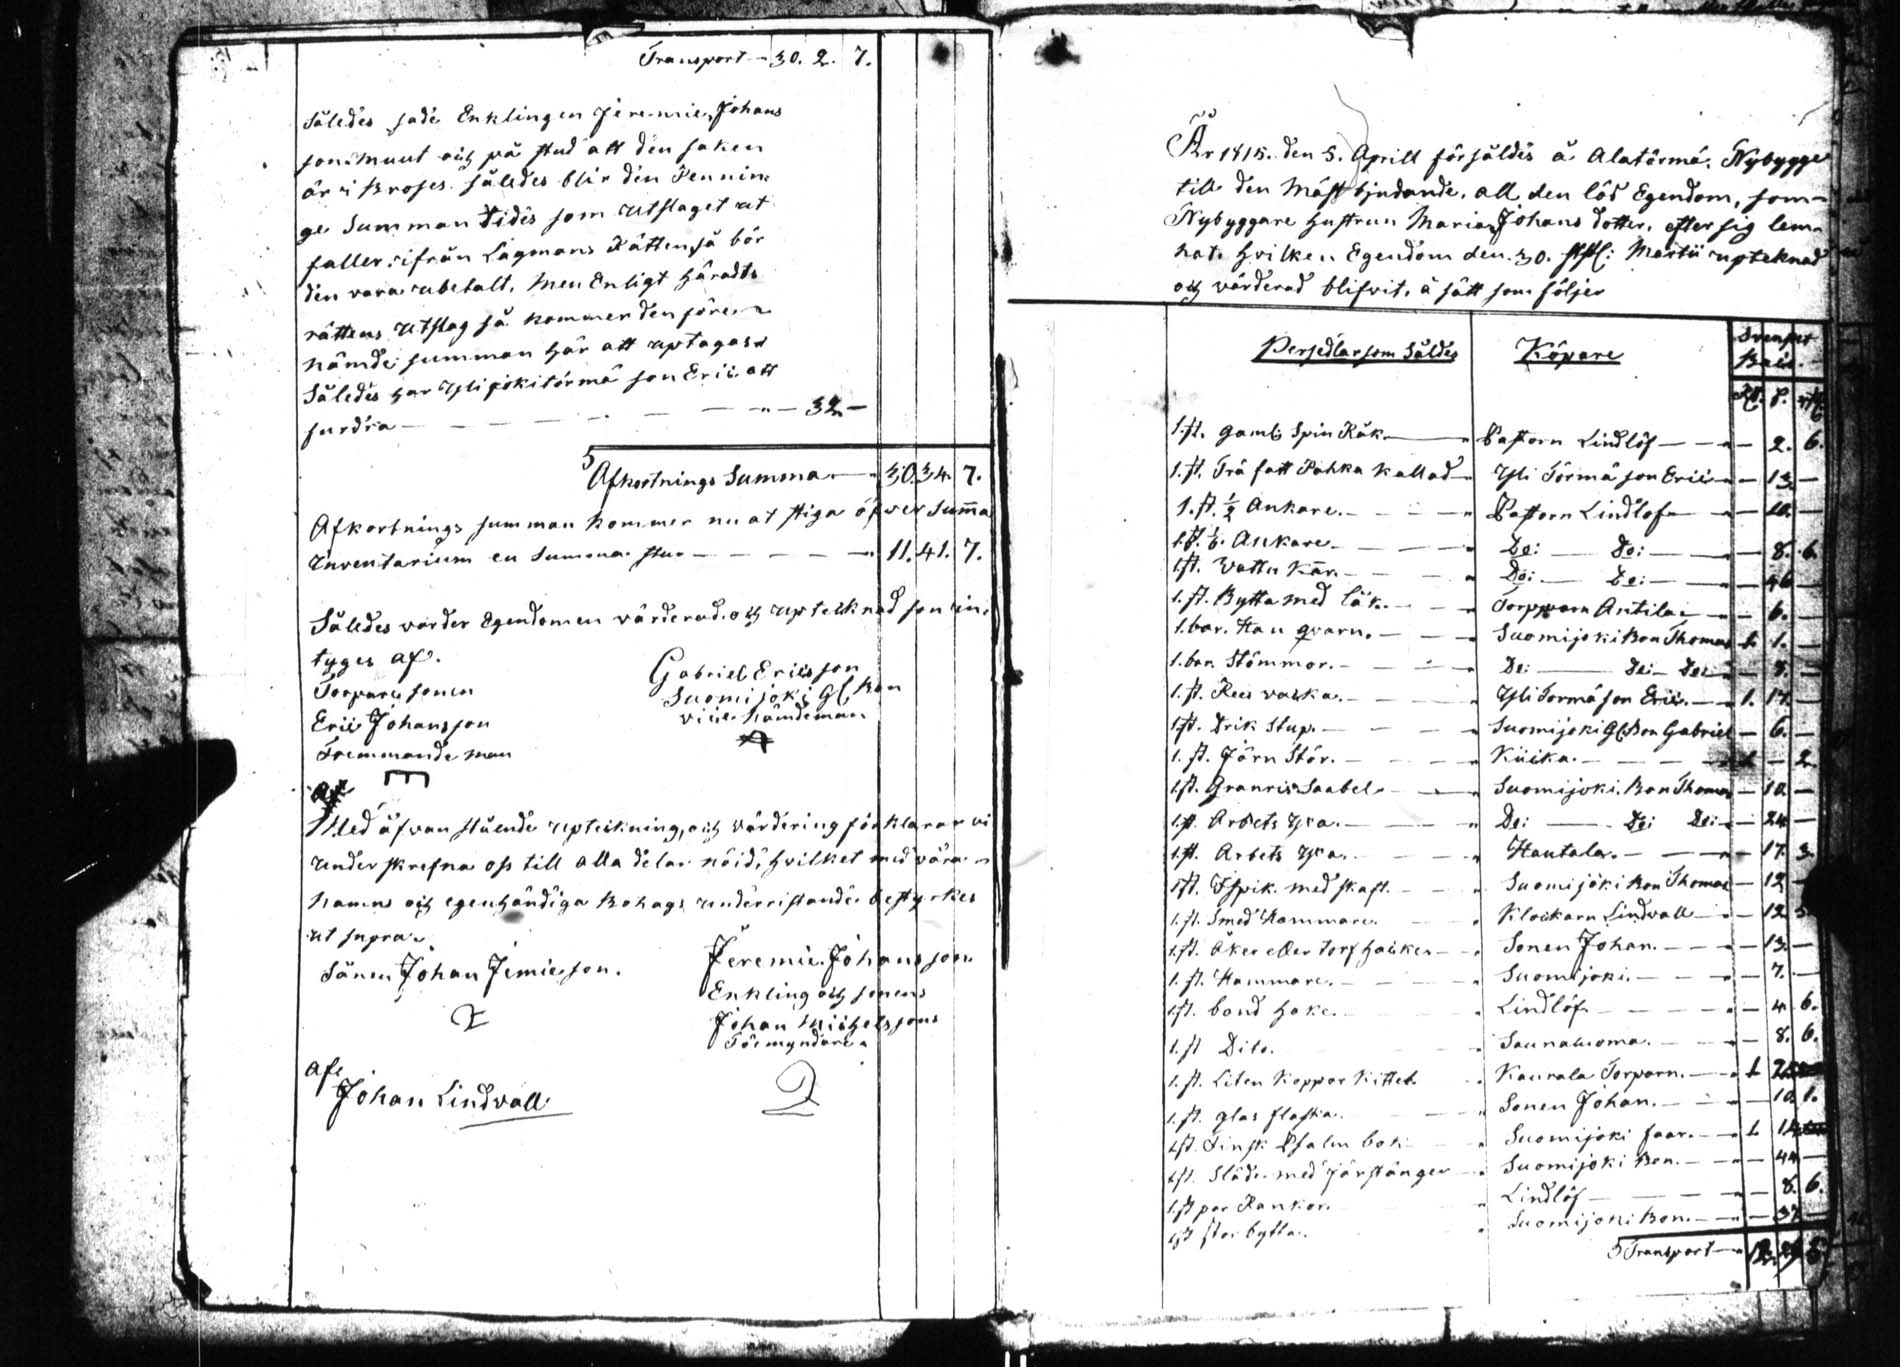 Transport — 30. 2. 7.
Således sade Enklingen Jeremie Johans
son Muut och på stud att den saken
är i Broses. således blir den Pennin=
ge Summan tidis som utslaget ut
faller ifrån Lagmans Rätten, så bör
den vara ubetalt, Men Enligt Häradts
rättens Utslag så kommer den före
nämde summan här att uptagas
Således har Yli jokitörmä son Eric att
fordra — — — — — — 32 —
Afkortnings Summa — 30. 34. 7.
Afkortnings summan kommer nu at stiga öfver Suma
Inventarium en Summa stor — — — — 11. 41. 7.
Således varder Egendomen värderad och uptecknad som in=
tyges af.
Torpare sonen
Eric Johansson
Fremmande man
Gabriel Ericsson
Suomijoki Gl Bon
vice Nämdeman
Med äfvan stående upteckning, och värdering förklarar vi
underskrefna oss till alla delar nöid, hvilket med våra
namns och egenhändiga Bohags underristande bestyrkes
ut supra.
Sånen Johan Jemiesson.
Jeremie Johansson
Enkling och sonens
Johan Michelssons
Förmyndare
af
Johan Lindvall
År 1815. den 5. Aprill försåldes å Alatörmä Nybygge
till den Mäst bjudande, all den lös Egendom, som
Nybyggare hustrun Maria Johans dotter, efter sig lem=
nat. Hvilken Egendom den 30. Martii upteknad
och värderad blifvit, å sätt som följer
Persedlar som Såldes Köpare Svenskt
Bco.
1. st. gamb Spin Råk — Pastorn Lindlöf — — 2. 6.
1. st. Trä fatt Pahka kallad — Yli Törmä son Eric — 13 —
1. st. ½ Ankare. — Pastorn Lindlöf — 10. —
1. st. ⅛. Ankare — Do: — Do: — 8. 6.
1. st. Vattu Kar. — Do: — Do: — 46 —
1. st. Bytta med låk. — Torpparn Antila — 6. —
1. bar. Han qvarn. — Suomijoki Bon Thomas 1. 1. —
1. bar. Stömmor. — Do: — Do: Do: — 8. —
1. st. Rees vaska. — Yli Tormä son Eric. — 1. 17. —
1. st. Drik Stup. — Suomijoki Gl Bon Gabriel — 6. —
1. st. Jörn Stör. — Kuika. — 2
1. st. Granris Saabel — Suomijoki Bon Thomas — 10. —
1. st. Arbets Yxa. — Do: — Do: Do: — 24 —
1. st. Arbets Yxa. — Hautala. — 17. 3.
1. st. Ispik med skaft. — Suomijoki Bon Thomas — 12 —
1. st. Smed Hammare. — Klockarn Lindvall — 12.
1. st. Åker eller torf hacker — Sonen Johan. — 13. —
1. st. Hammare. — Suomijoki. — 7. —
1. st. band hake. — Lindlöf — 4. 6.
1. st. Dito. — Saunavoma. — 8. 6.
1. st. Liten Koppar Kittel. — Kaurala Torparn. — 1
1. st. glas flaska. — Sonen Johan. — 10. 1.
1. st. Finsk Psalm bok — Suomijoki faar. — 1 14
1. st. Släde med järstänger — Suomijoki Bon. — 44 —
1. st par Rankor. — Lindlöf — 8. 6.
1. st stor bytta. — Suomijoki Bon. — 37 —
Transport — 12.